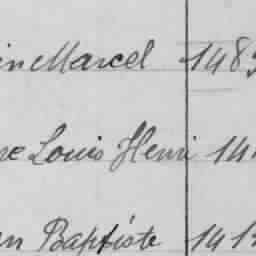 Marcel 148
Louis Henri 14
Baptiste 141